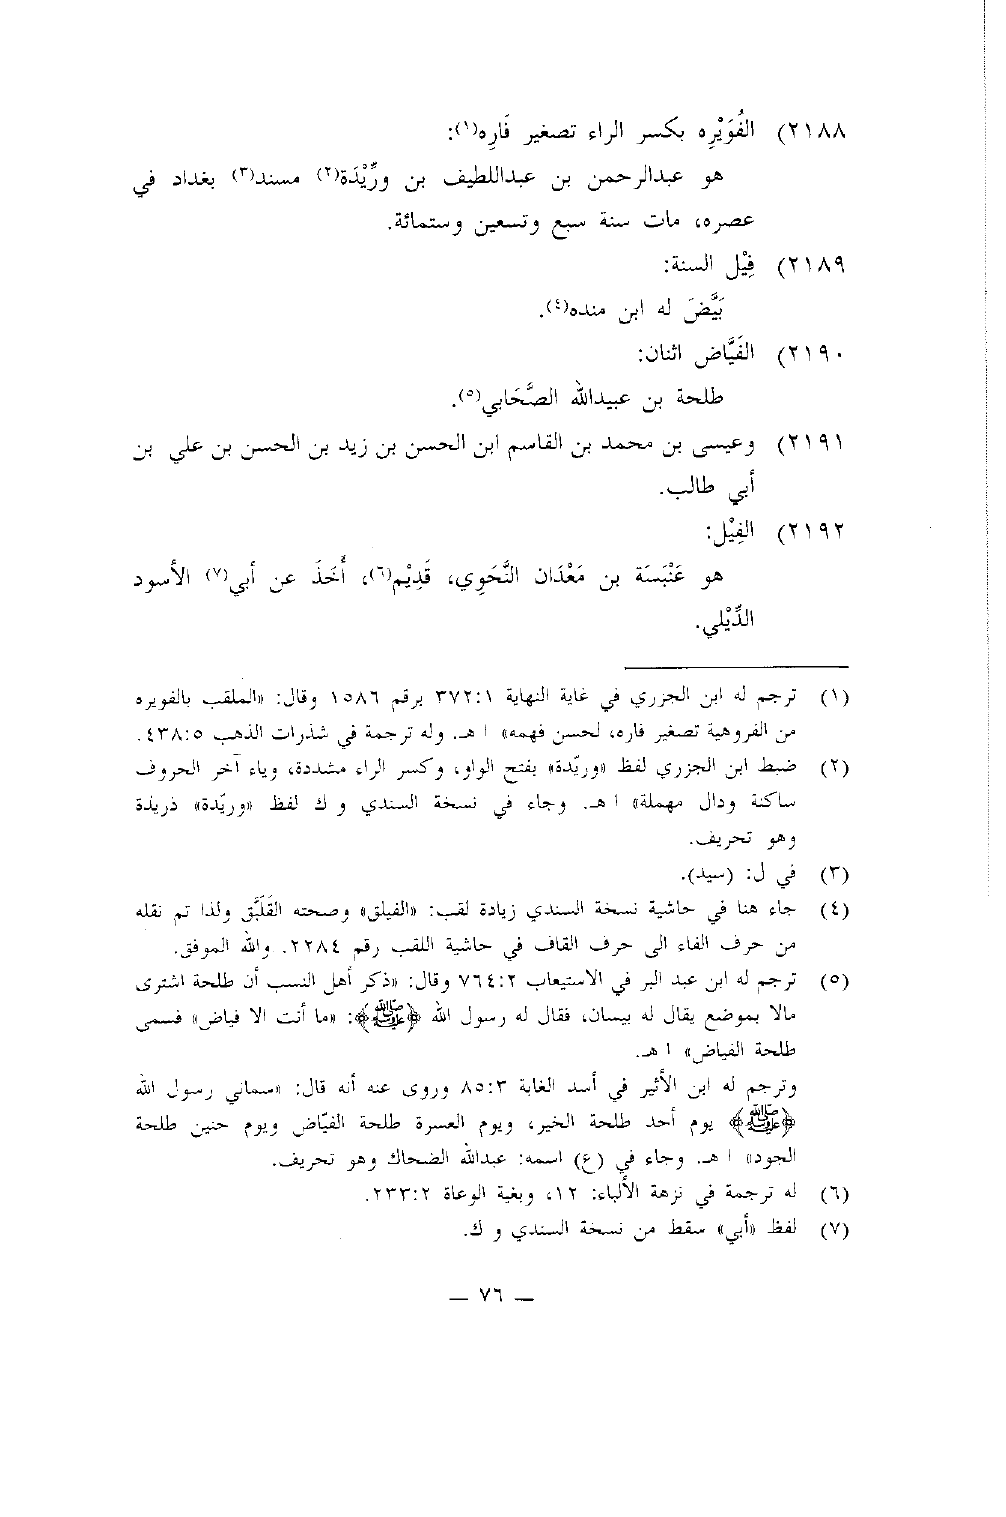 ٢١٨٨) الفُوَيْرِه بكسر الراء تصغير فَارِه(١):
هو عبدالرحمن بن عبداللطيف بن ورِّيْدَة(٢) مسند(٣) بغداد في
عصره، مات سنة سبع وتسعين وستمائة.
٢١٨٩) فِيْل السنة:
بَيَّضَ له ابن منده(٤).
٢١٩٠) الفَيَّاض اثنان:
طلحة بن عبيدالله الصَّحَابي(٥).
٢١٩١) وعيسى بن محمد بن القاسم ابن الحسن بن زيد بن الحسن بن علي بن
أبي طالب.
٢١٩٢) الفِيْل:
هو عَنْبَسَة بن مَعْدَان النَّحَوِي، قَدِيْم(٦)، أَخَذَ عن أبي(٧) الأسود
الدِّيْلي.
(١) ترجم له ابن الجزري في غاية النهاية ٣٧٢:١ برقم ١٥٨٦ وقال: «الملقب بالفويره
من الفروهية تصغير فاره، لحسن فهمه» ا هـ. وله ترجمة في شذرات الذهب ٤٣٨:٥.
(٢) ضبط ابن الجزري لفظ «وريّدة» بفتح الواو، وكسر الراء مشددة، وياء آخر الحروف
ساكنة ودال مهملة» ا هـ. وجاء في نسخة السندي و ك لفظ «وريّدة» ذريذة
وهو تحريف.
(٣) في ل: (سيد).
(٤) جاء هنا في حاشية نسخة السندي زيادة لقب: «الفيلق» وصحته القَلَبَّق ولذا تم نقله
من حرف الفاء الى حرف القاف في حاشية اللقب رقم ٢٢٨٤. والله الموفق.
(٥) ترجم له ابن عبد البر في الاستيعاب ٧٦٤:٢ وقال: «ذكر أهل النسب أن طلحة اشترى
مالا بموضع يقال له بيسان، فقال له رسول الله ﴿ﷺ﴾: «ما أنت الا فياض» فسمى
طلحة الفياض» ا هـ.
وترجم له ابن الأثير في أسد الغابة ٨٥:٣ وروى عنه أنه قال: «سماني رسول الله
﴿ﷺ﴾ يوم أحد طلحة الخير، ويوم العسرة طلحة الفيّاض ويوم حنين طلحة
الجود» ا هـ. وجاء في (ع) اسمه: عبدالله الضحاك وهو تحريف.
(٦) له ترجمة في نزهة الألباء: ١٢، وبغية الوعاة ٢٣٣:٢.
(٧) لفظ «أبي» سقط من نسخة السندي و ك.
— ٧٦ —